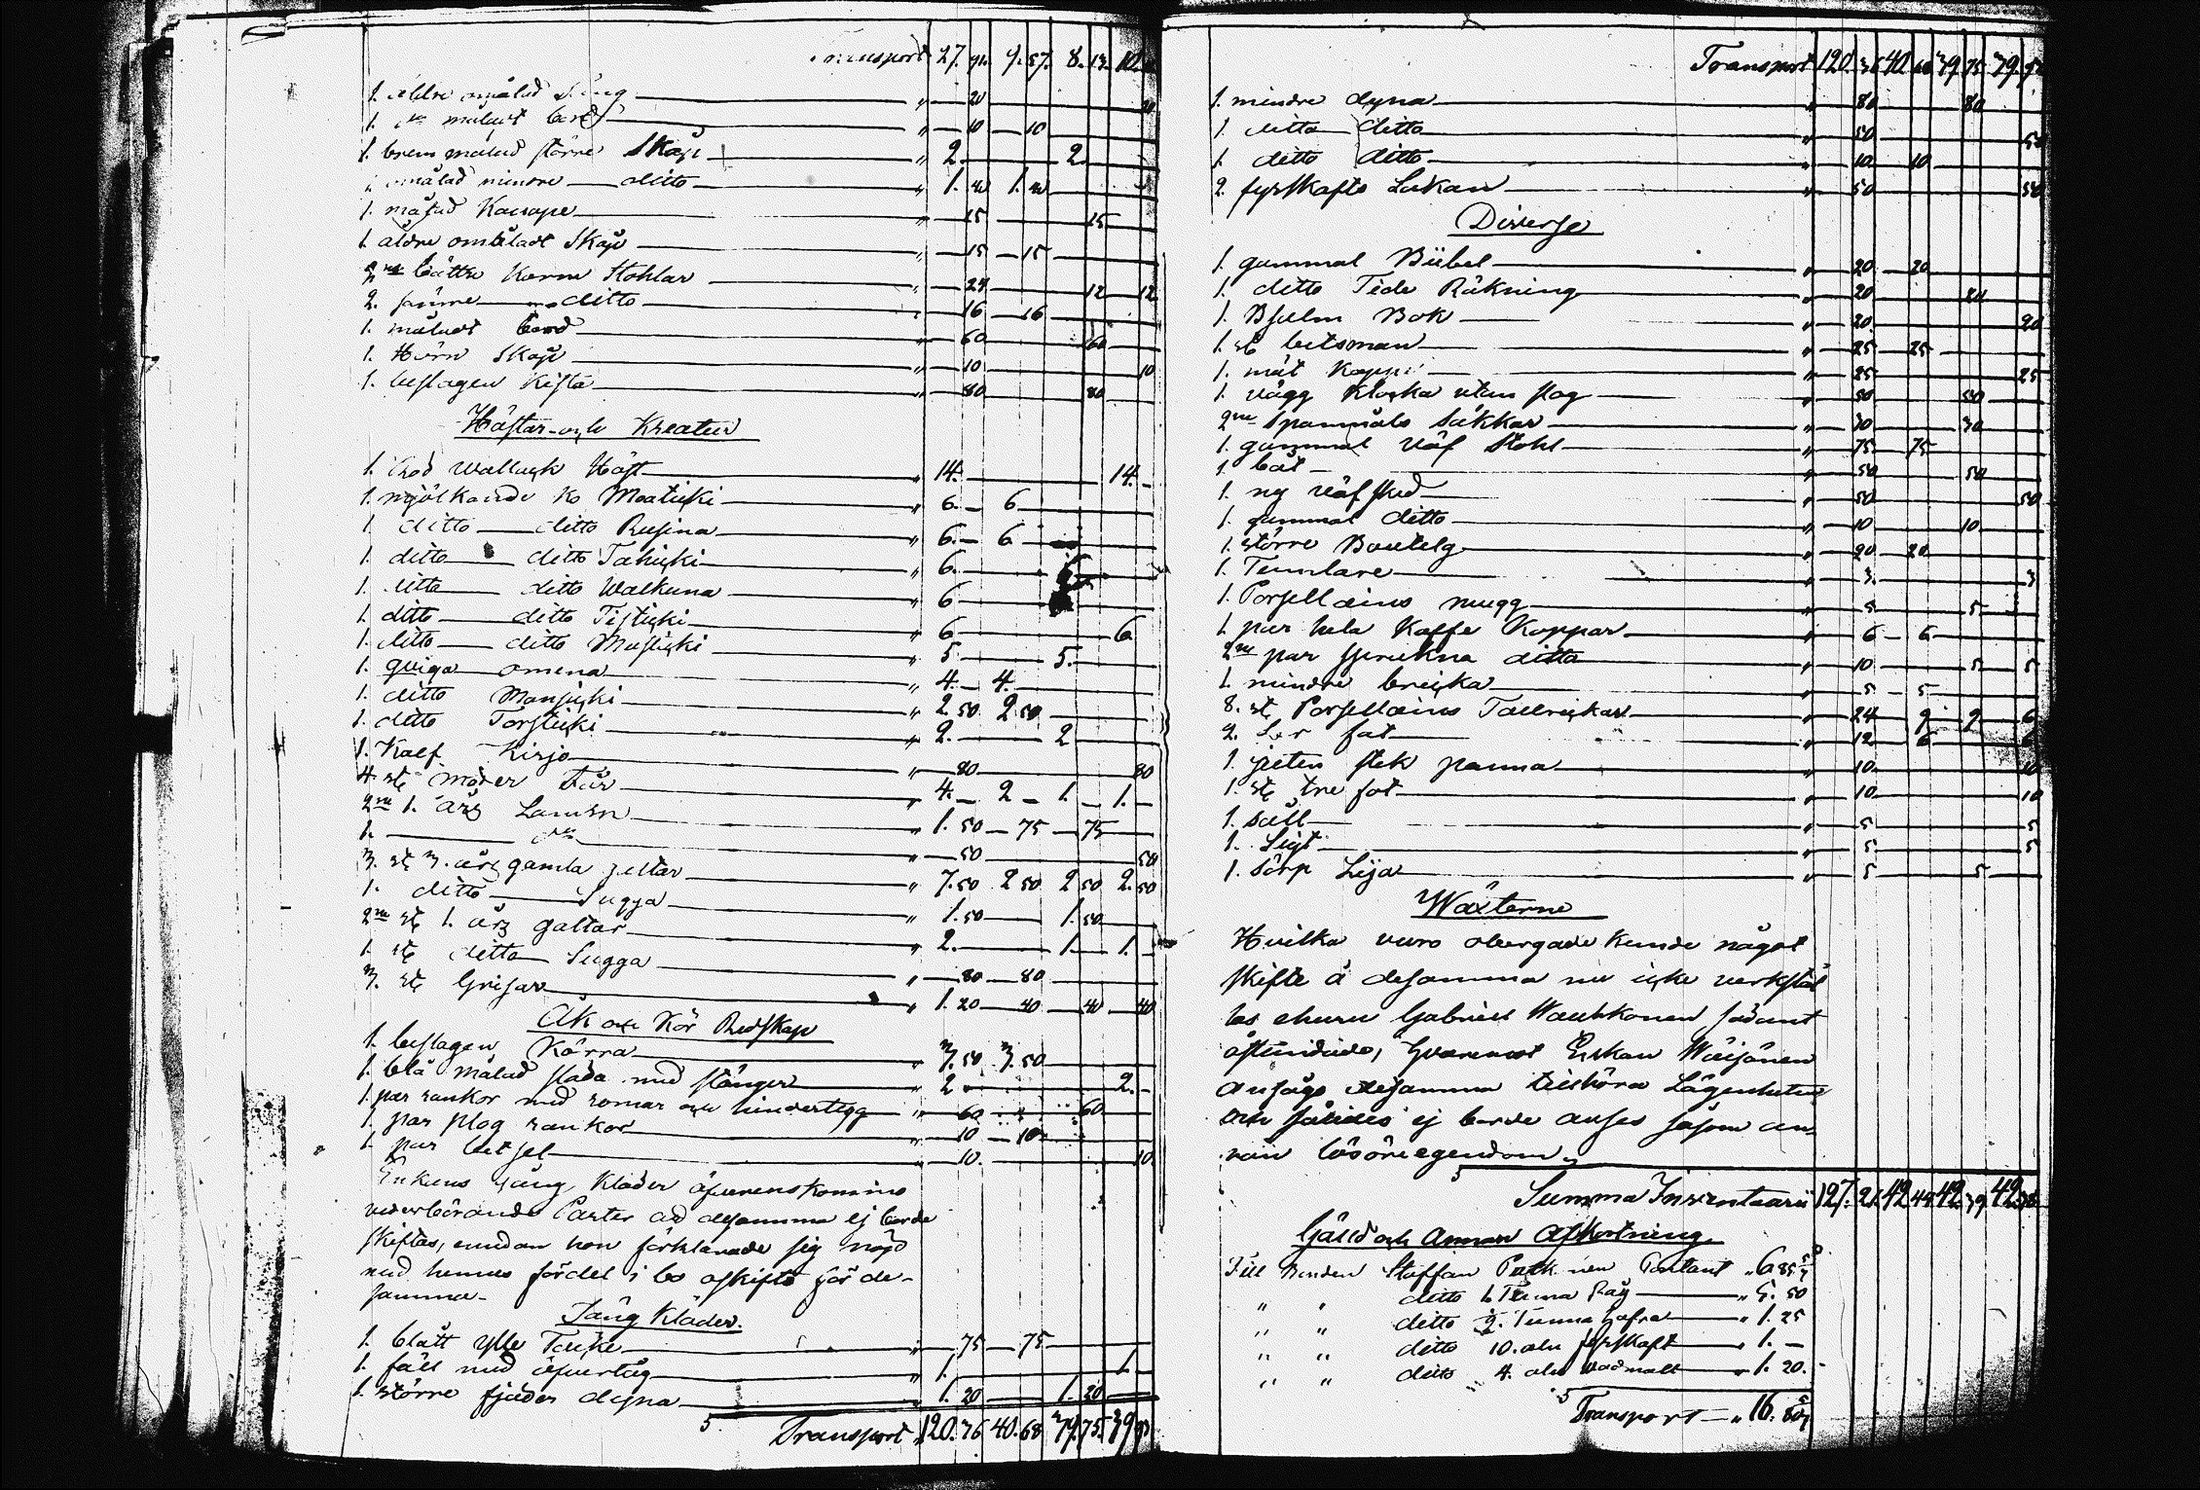 Transport 27. 91. 9. 57. 8. 13. 10.
1. äldre målad Säng " 20 20
1. måladt bord " 10 10
1. brun målad större Skåp " 2. 2
omålad mindre ditto " 1. 40 1. 40
1. målad Kanape " 15 15
1. äldre omåladt Skåp " 15 15
2ne bättre Karm Stohlar " 24 12 12
2. sämre ditto " 16 16
1. måladt bord " 60 60
1. Hörn Skåp " 10 10
1. beslagen Kista " 80 80
Hästar och Kreatur
1. Wallack Häst " 14. 14.
1. mjölkande Ko Maaticki " 6. 6
1. ditto ditto Rusina " 6. 6
1. ditto ditto Tähicki " 6.
1. ditto ditto Walkuna " 6
1. ditto ditto Tisticki " 6 6
1. ditto ditto Musticki " 5 5.
1. qviga omena " 4. 4.
1. ditto Mansicki " 2 50 2 50
1. ditto Torsticki " 2. 2
1. Kalf Kirjo " 80 80
4. st moder Får " 4. 2 1. 1.
2ne 1. års Lamm " 1. 50 75 75
1. " 50 50
3. st 3. års gamla galtar " 7. 50 2 50 2 50 2. 50
1. ditto Sugga " 1. 50 1. 50
2ne st 1. års galtar " 2. 1 1.
1. st ditto Sugga " 80 80
3. st Grisar " 1. 20 40 40 40
Åk och Kör Redskap
1. beslagen Kärra " 3. 50 3. 50
1. blå målad släda med stänger " 2 2.
1. par rankor med romar och hindertygg " 60 60
1. par plog rankor " 10 10
1. par betsel " 10. 10
Enkans Gång Kläder öfverenskommo
vederbörande Parter att desamma ej borde
skiftas, emedan hon förklarade sig nöjd
med hennes fördel i bo oskifto för de-
samma
Säng Kläder.
1. blått ylle Täcke " 75 75
1. fäll med öfvertåg " 1. 1
1. större fjäder dyna " 1. 20 1. 20
Transport " 120. 36 40. 68 39. 75. 39
Transport 120. 36 40. 68 39. 75 39.
1. mindre dyna " 80 80
1. ditto ditto " 50 50
1. ditto ditto " 10 10
2. fyrskafts Lakan " 50 50
Diverse
1. gammal Biibel " 20 20
1. ditto Tide Räkning " 20 20
1. Psalm Bok " 20 20
1. st betsman " 25 25
1. mät Kappe " 25 25
1. vägg Klocka utan slag " 50 50
2ne Spanmåls säkkar " 30 30
1. gammal Väf Stohl " 75 75
1. båt " 50 50
1. ny väf sked " 50 50
1. gammal ditto " 10 10
1. större Boutelg " 20 20
1. Tumlare " 3. 3
1. Porsellains mugg " 5 5
1. par hela Kaffe Koppar " 6 6
2ne par sprukna ditto " 10 5 5
1. mindre bricka " 5 5
8. st Porsellains Tallrickar " 24 9 9 6
2. Ler fat " 12 6 6
1. jutin stek panna " 10 10
1. st tre fot " 10 10
1. såll " 5 5
1. Sigt " 5 5
1. sörp Lija " 5 5
Wäxterne
Hvilka voro obergade Kunde något
skifte å desamma nu icke verkstäl
las ehuru Gabriel Wauhkonen sådant
åstundade, hvaremot Enkan Wäisänen
ansågo desamma tillhöra Lägenheten
och således ej borde anses såsom an-
nan lösöreegendom
Summa Inventaarii 127. 21 42 44 42 39 42
Gäld och Annan Afkortning
Till Bonden Staffan Contant " 6 85 5/7
" " ditto 1. Tunna Råg " 5. 50
" " ditto 1/2. Tunna hafra " 1. 25
" " ditto 10. aln fyrskaft " 1. —
" " ditto 4. aln wadmalt " 1. 20.
Transport " 16. 80 5/7